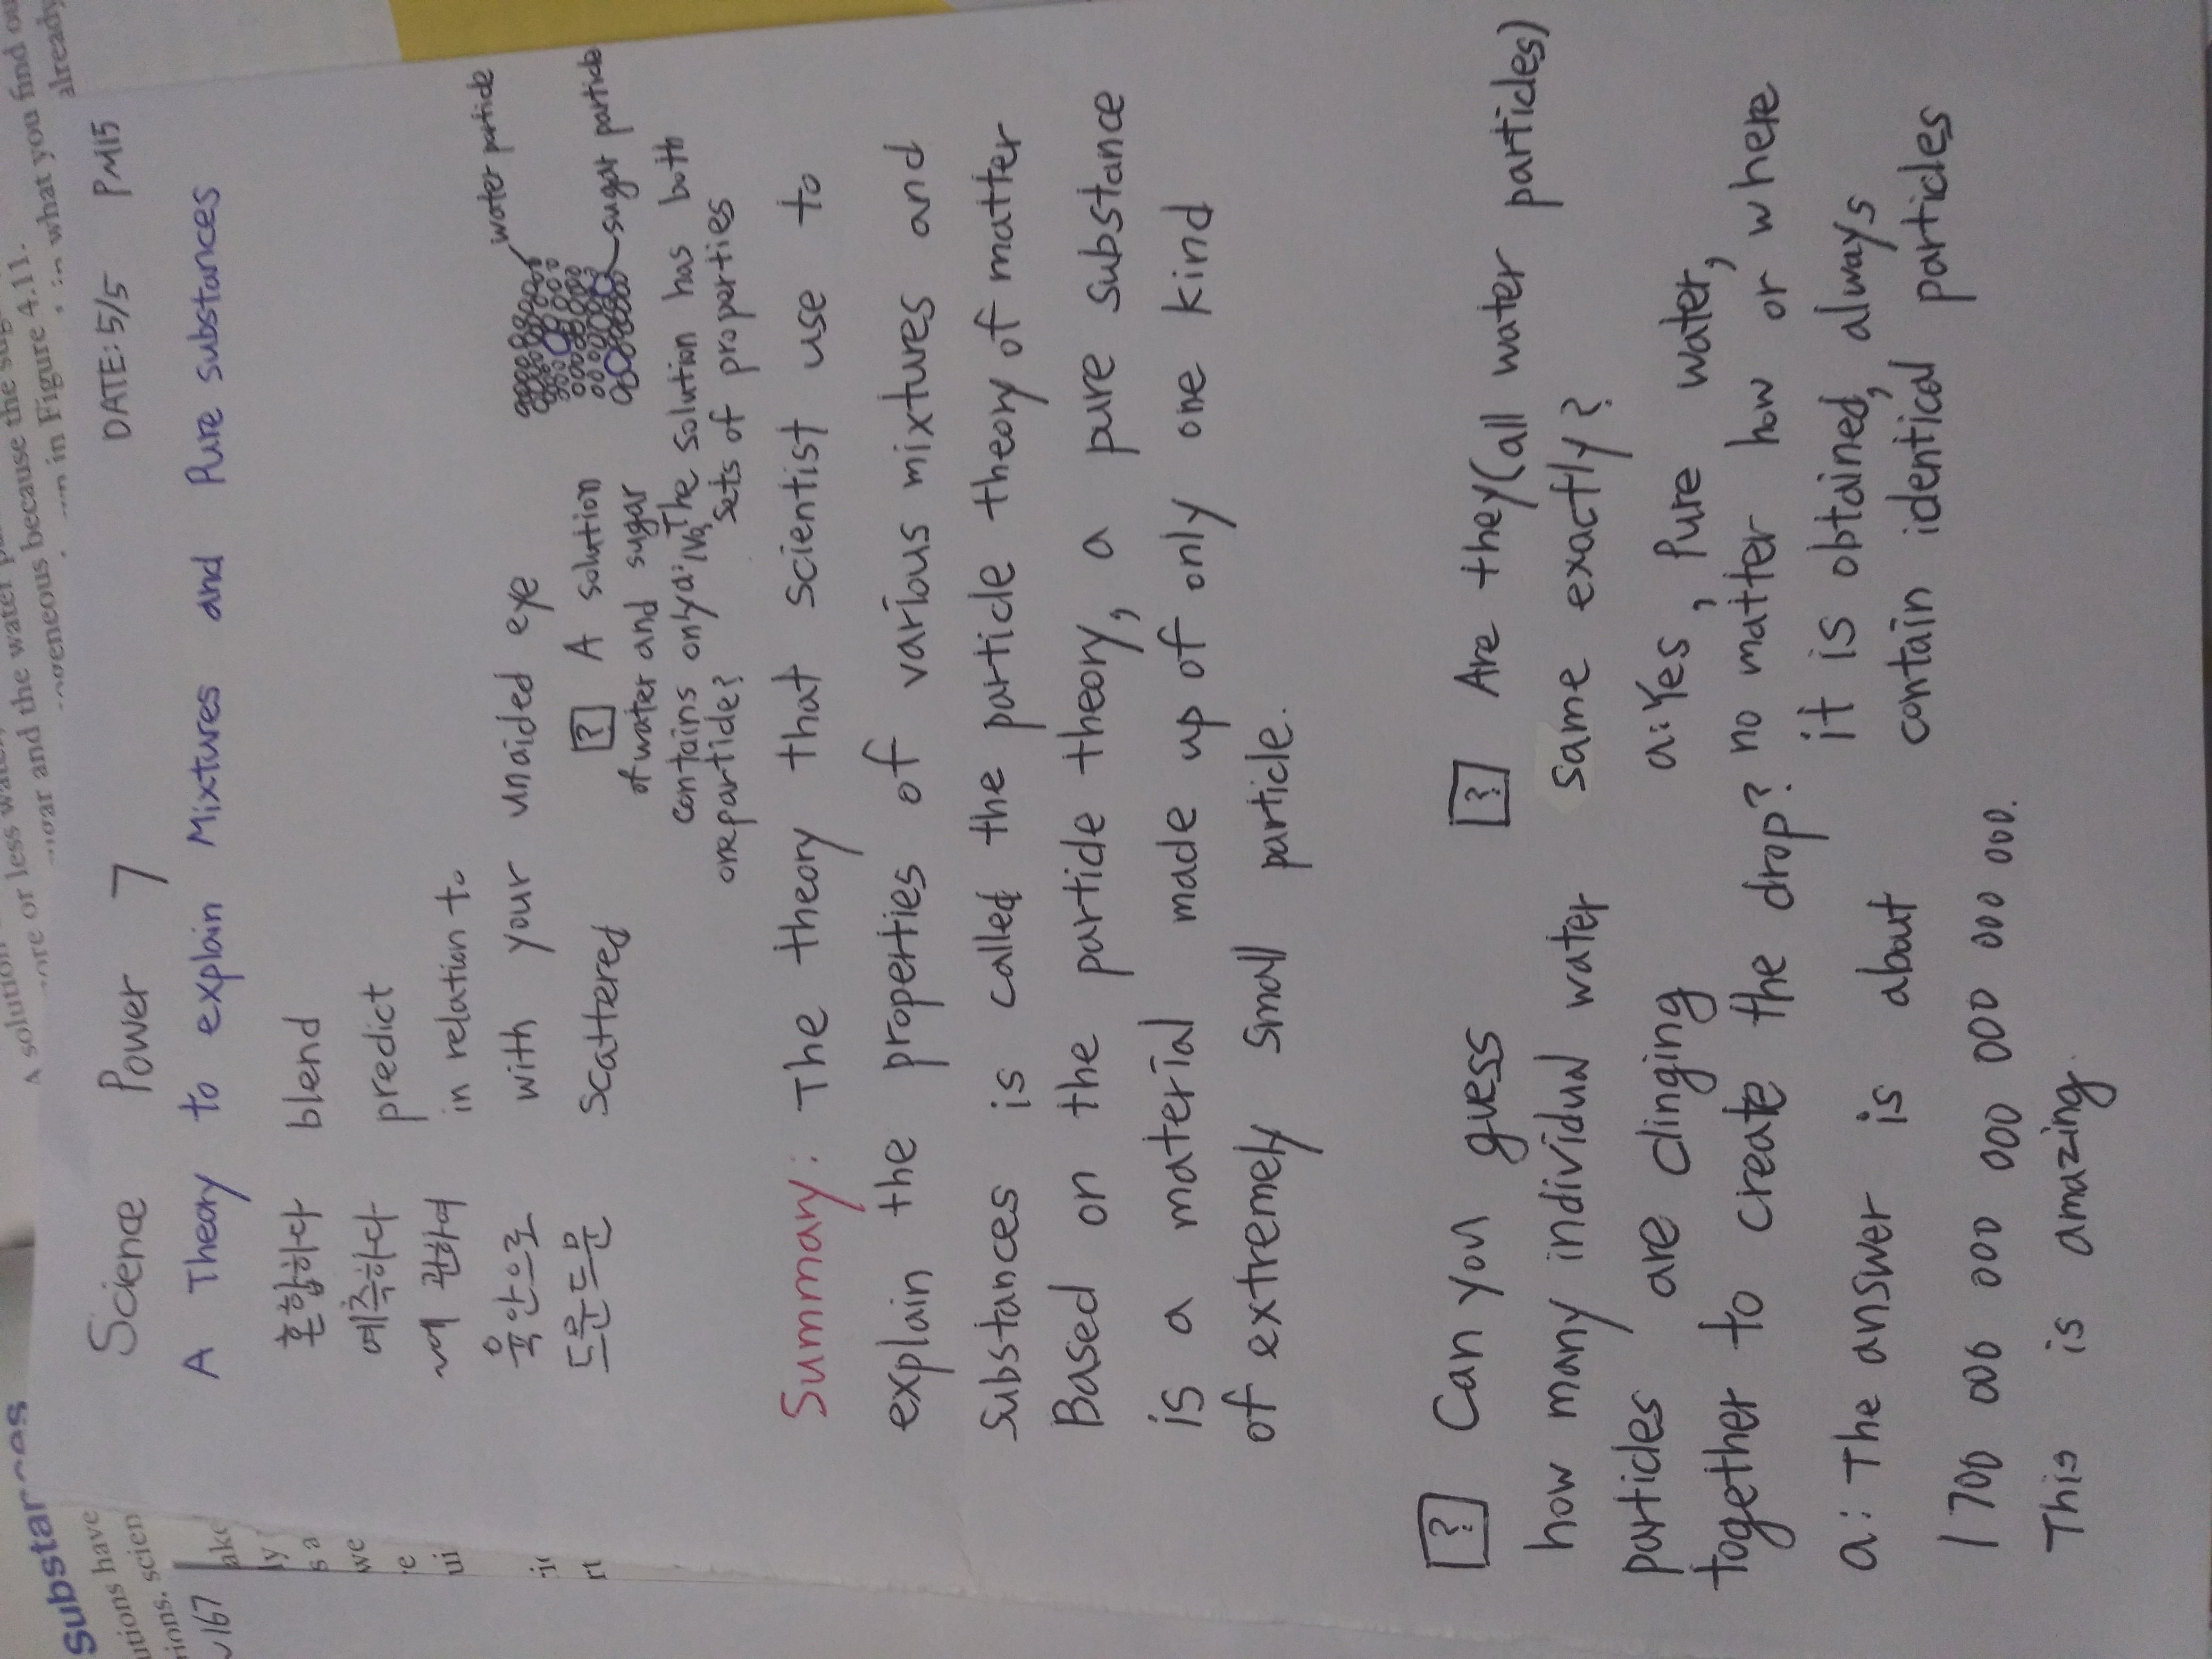 A solution
more or less water,
sugar and the water
because the
in Figure 4.11.
in what you find
already
substan
utions have
tions. scien
167
Science Power 7 DATE: 5/5 PM15
A Theory to explain Mixtures and Pure substances
혼합하다 blend
예측하다 predict
~에 관하여 in relation to
육안으로 with your unaided eye
드문드문 scattered
water particle
sugar particle
[?] A solution
of water and sugar
contains only
one particle?
a: No, The solution has both
sets of properties
Summary: The theory that scientist use to
explain the properties of various mixtures and
substances is called the particle theory of matter
Based on the particle theory, a pure substance
is a material made up of only one kind
of extremely small particle.
[?] Can you guess
how many individual water
particles are clinging
together to create the drop?
a: The answer is about
1 700 000 000 000 000 000 000.
This is amazing.
[?] Are they (all water particles)
same exactly?
a: Yes, Pure water,
no matter how or where
it is obtained, always
contain identical particles